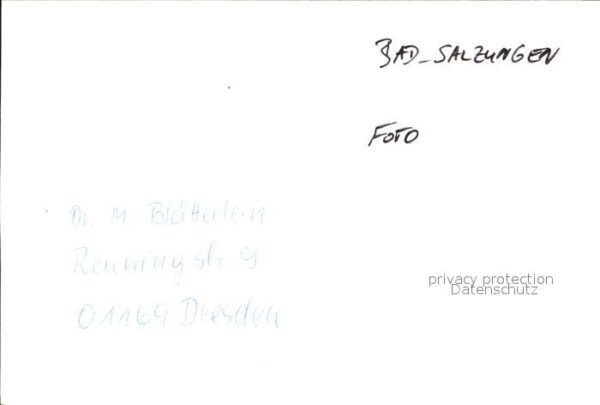 BAD-SALZUNGEN
FOTO
Dr. M. Blätterlein
Renningstr. 9
01169 Dresden
privacy protection
Datenschutz